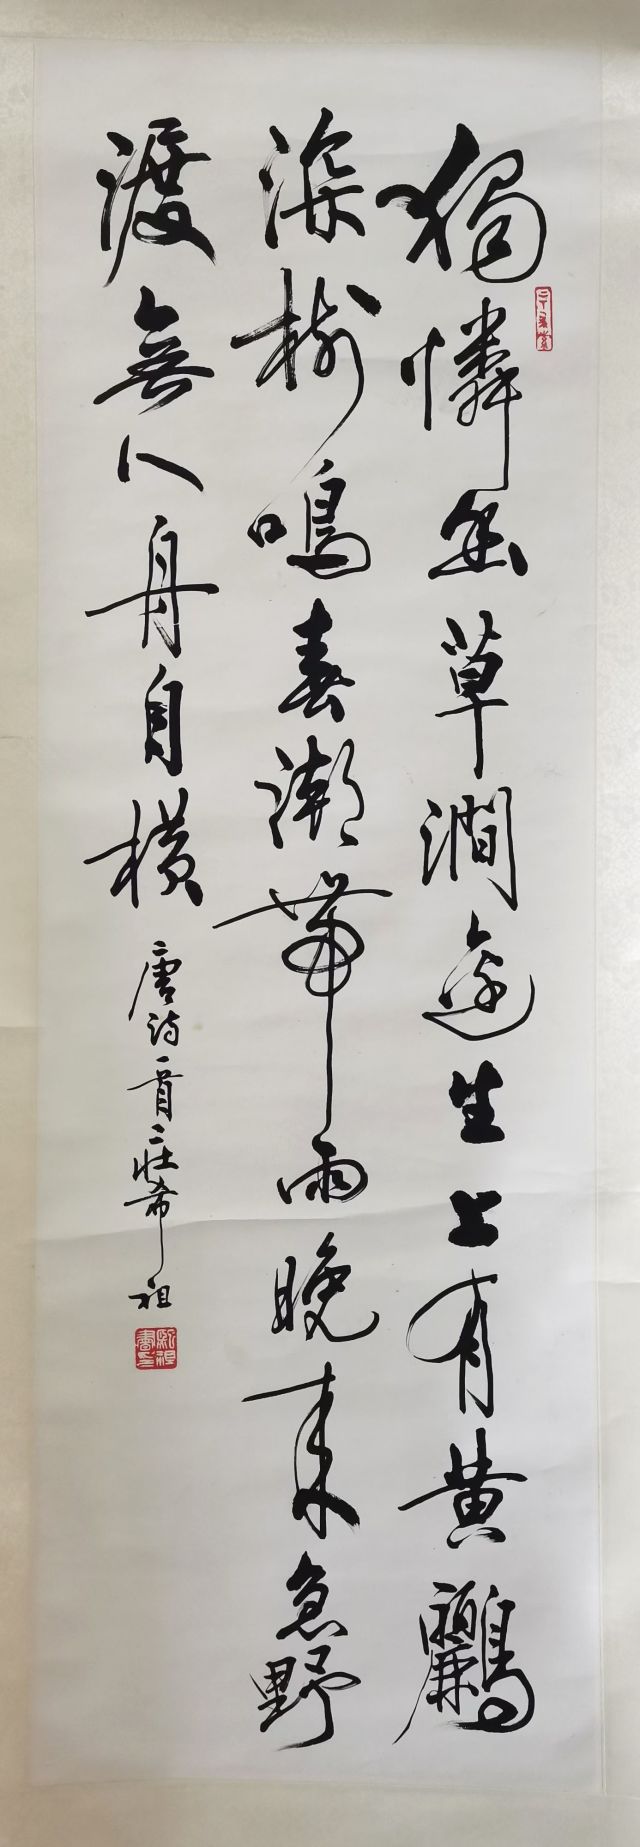 獨憐幽草澗邊生上有黄鸝
深樹鳴春潮帶雨晚来急野
渡無人舟自横
唐詩一首莊希祖